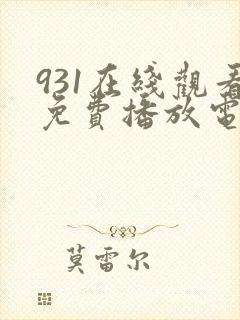 931在綫觀看
免費播放電
莫雷尔